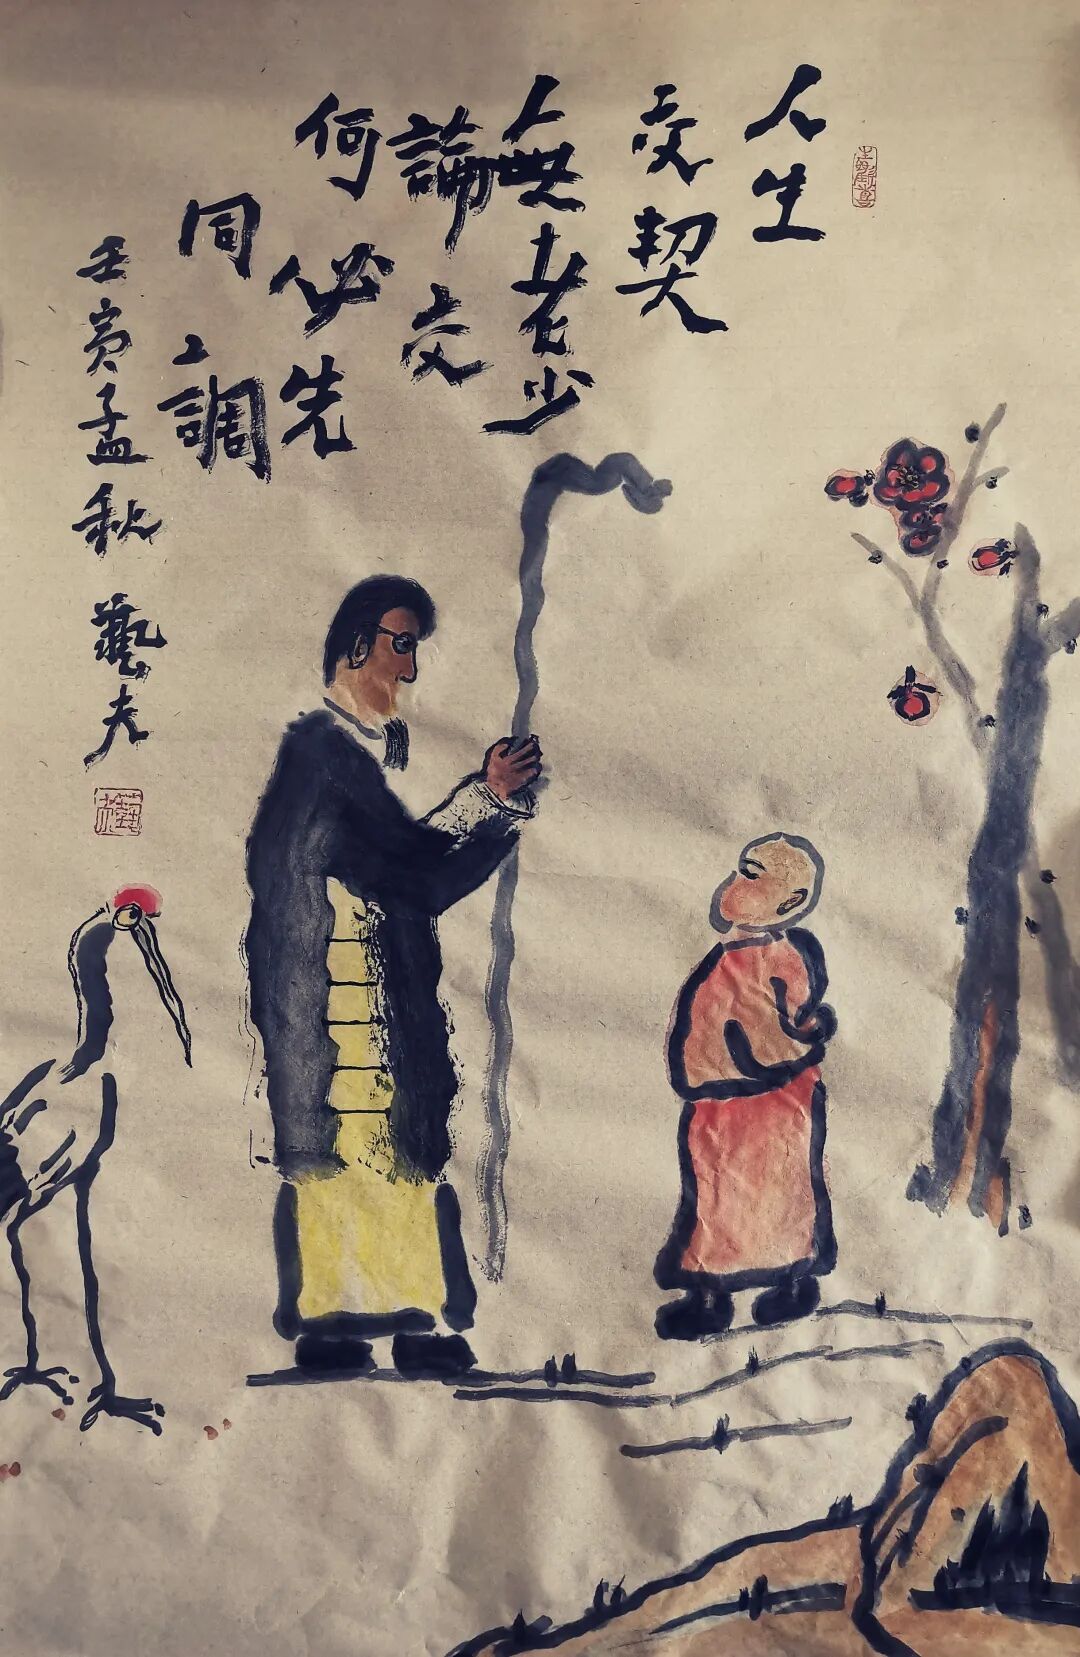 人生
交契
無老少
論交
何必先
同調
壬寅孟秋 藝夫